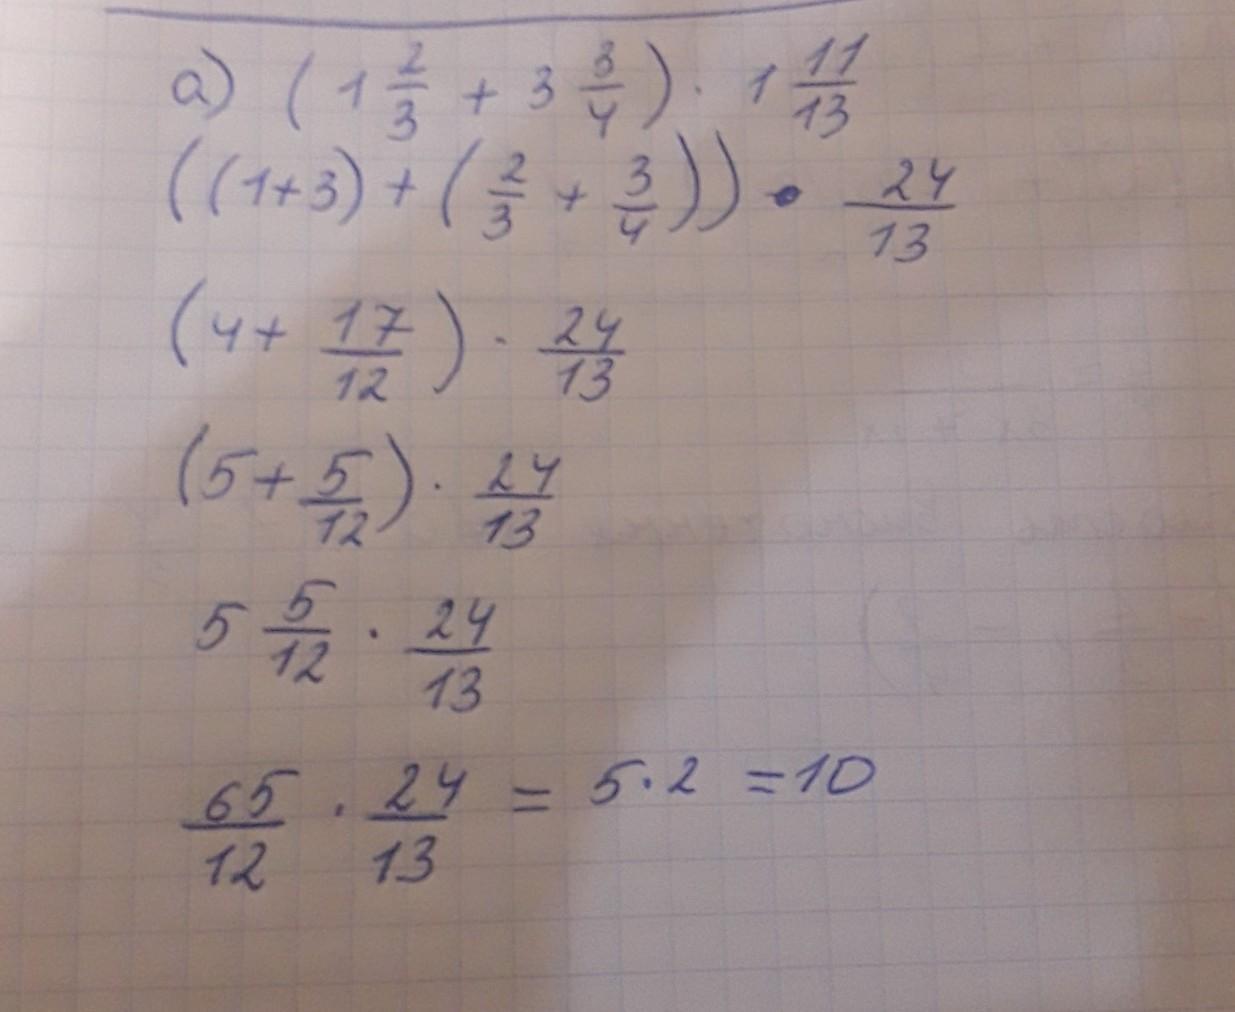 а) (1 2/3 + 3 3/4) · 1 11/13
((1+3) + (2/3 + 3/4)) · 24/13
(4 + 17/12) · 24/13
(5 + 5/12) · 24/13
5 5/12 · 24/13
65/12 · 24/13 = 5·2 = 10